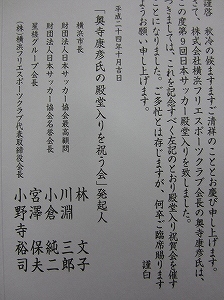 謹啓 秋冷の候ますますご清祥のことお慶び申し上げます。
さて、株式会社横浜フリエスポーツクラブ会長の奥寺康彦氏が、
この度第9回日本サッカー殿堂入りを致しました。
つきましては、これを記念すべく左記のとおり殿堂入り祝賀会を催す
ことになりました。ご多忙とは存じますが、何卒ご臨席賜ります
ようお願い申し上げます。
謹白
平成二十四年十月吉日
「奥寺康彦氏の殿堂入りを祝う会」発起人
横浜市長 林 文子
財団法人日本サッカー協会最高顧問 川淵 三郎
財団法人日本サッカー協会名誉会長 小倉 純二
星槎グループ会長 宮澤 保夫
(株)横浜フリエスポーツクラブ代表取締役会長 小野寺 裕司